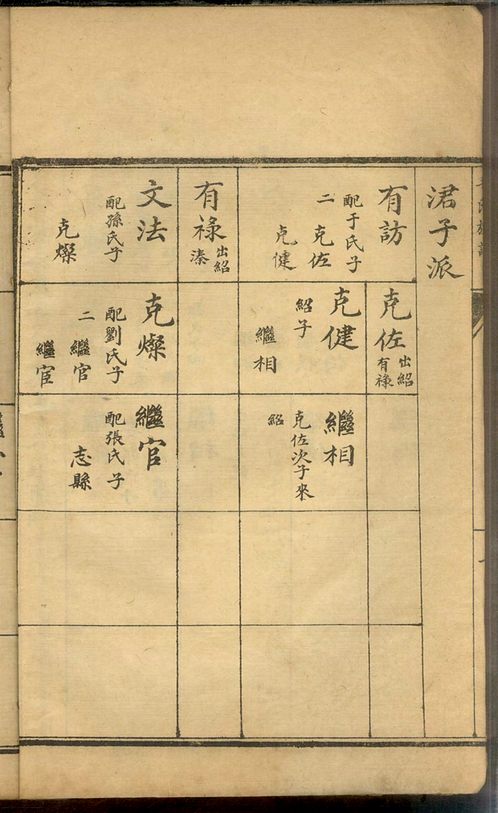 珺子派
有訪
配于氏子
二 克佐
克健
有祿
出紹
溱
文法
配孫氏子
克燦
克佐
出紹
有祿
克健
紹子
繼相
克燦
配劉氏子
二 繼官
繼宦
繼相
克佐次子來
紹
繼官
配張氏子
志縣